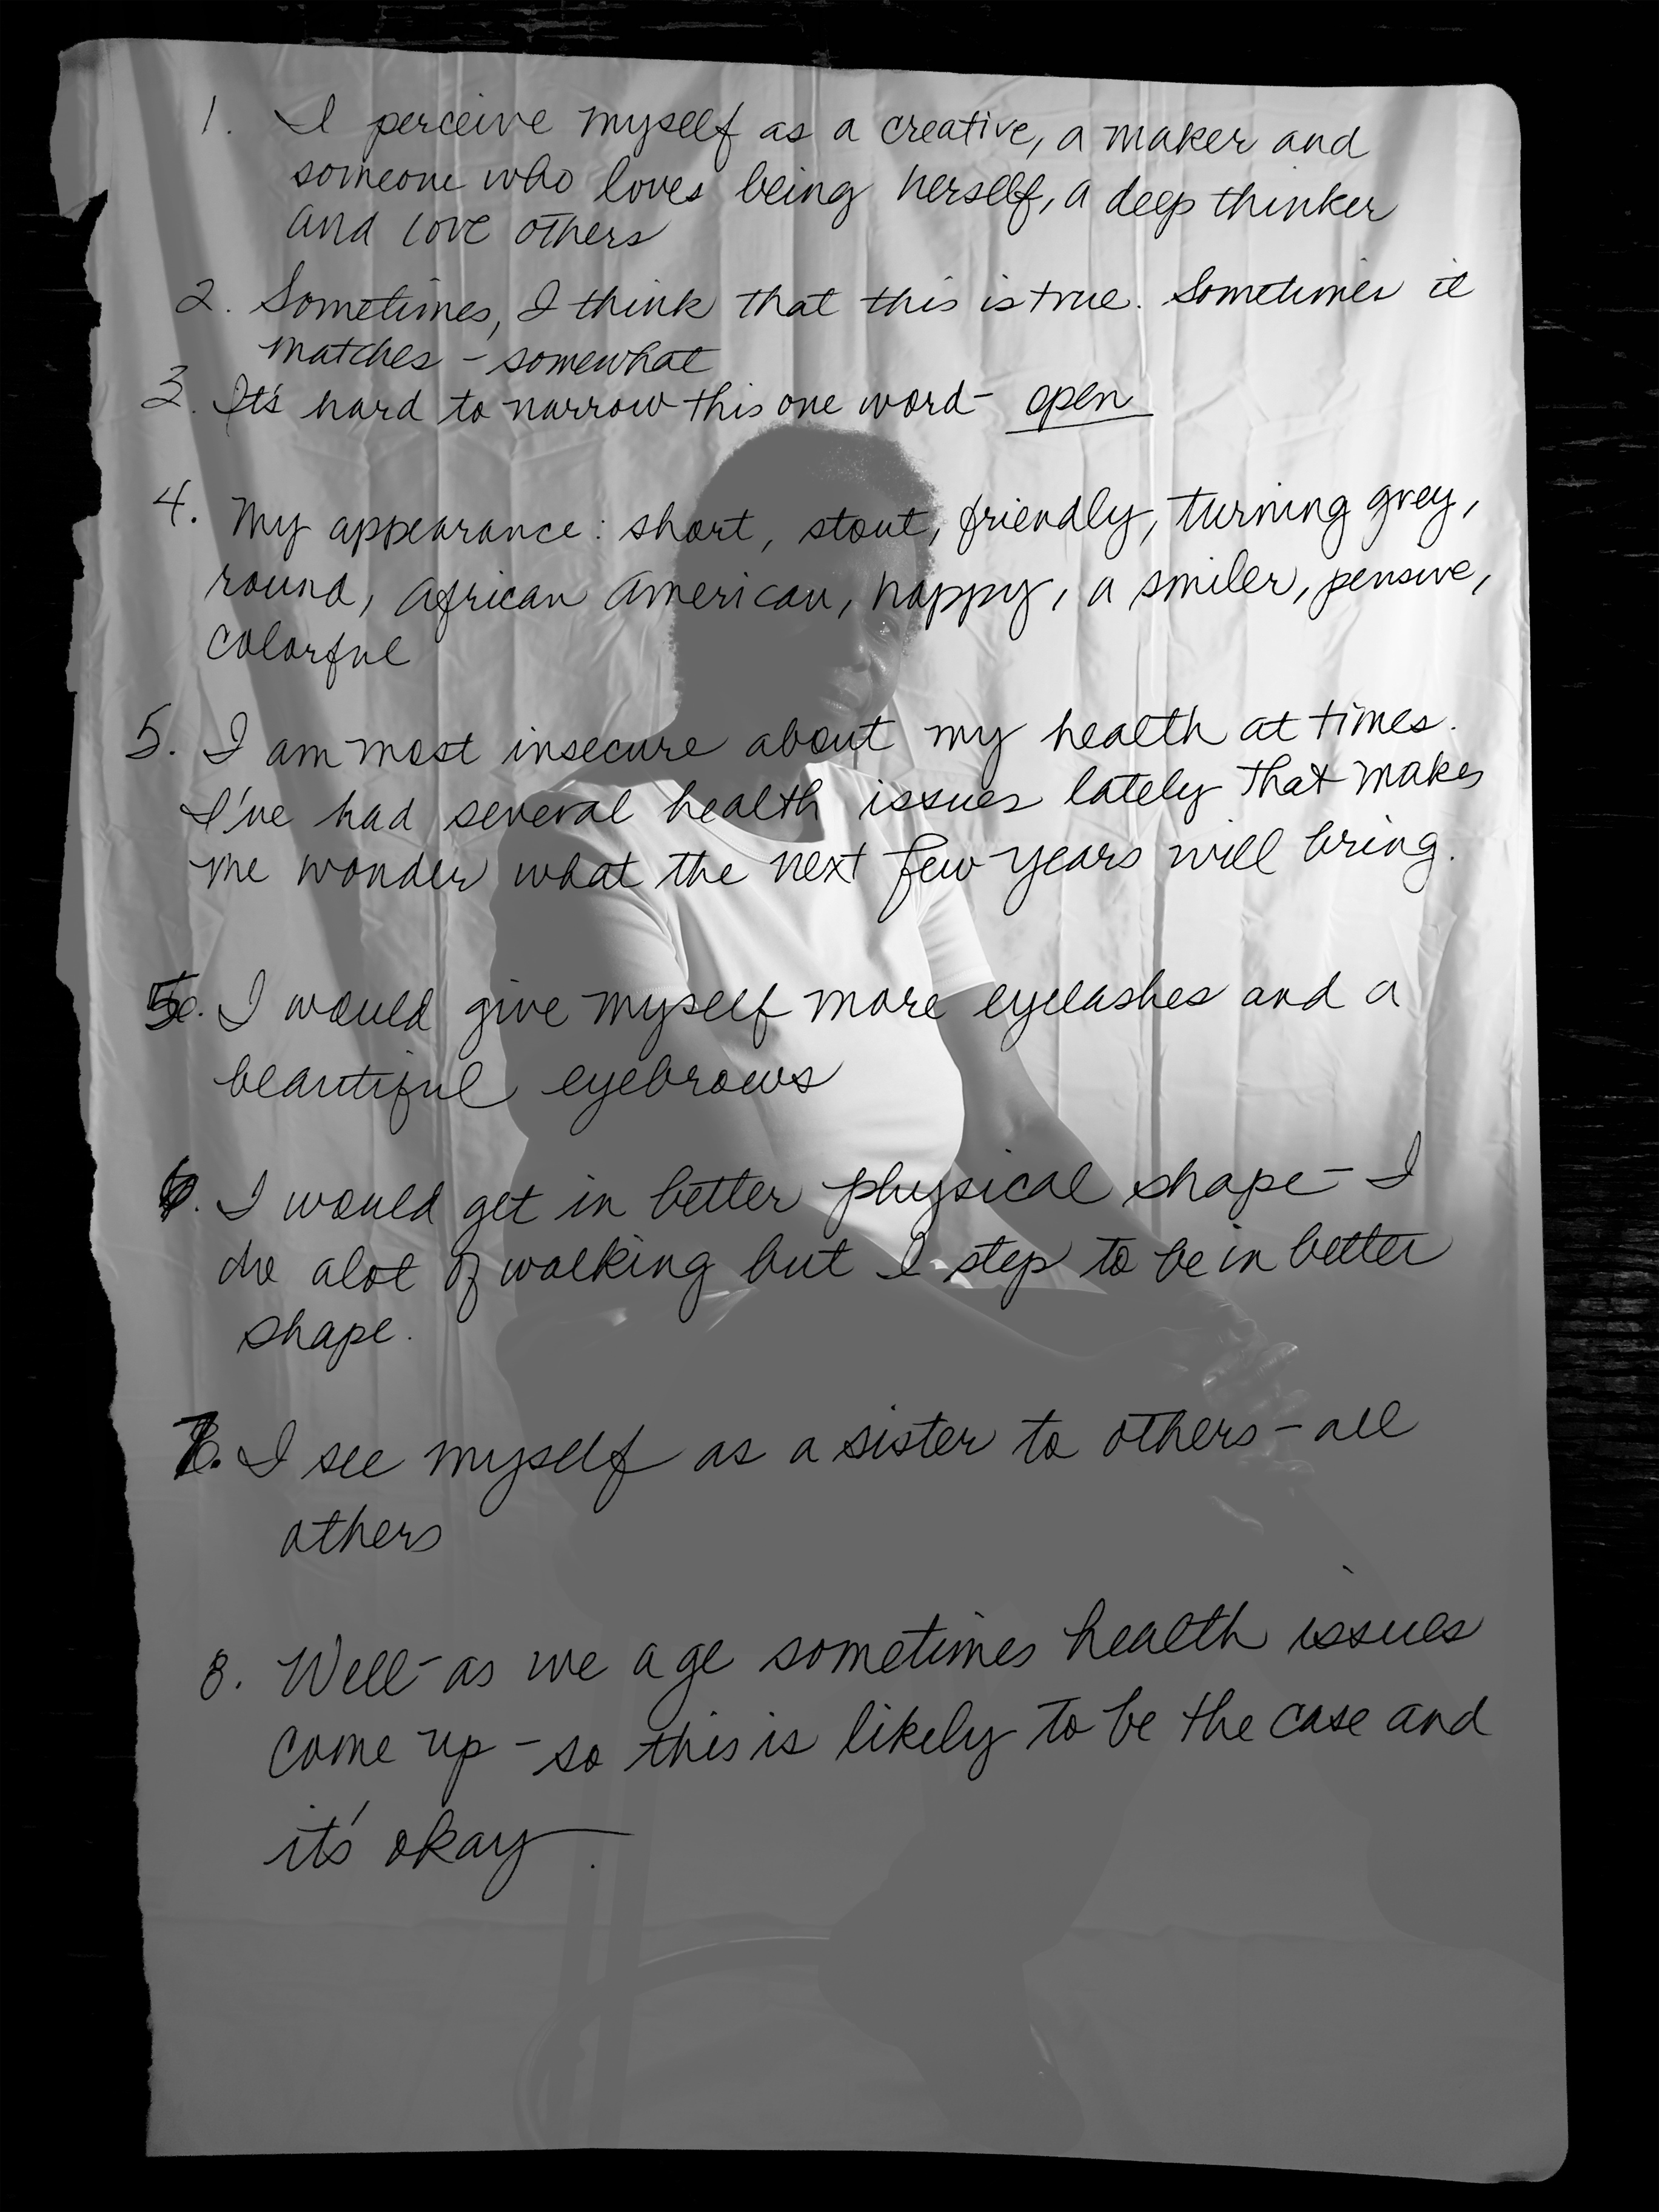 1. I perceive myself as a creative, a maker and
someone who loves being herself, a deep thinker
and love others
2. Sometimes, I think that this is true. Sometimes it
matches - somewhat
3. It's hard to narrow this one word - open
4. My appearance: short, stout, friendly, turning grey,
round, African American, happy, a smiler, pensive,
colorful
5. I am most insecure about my health at times.
I've had several health issues lately that makes
me wonder what the next few years will bring.
5. I would give myself more eyelashes and a
beautiful eyebrows
6. I would get in better physical shape - I
do alot of walking but I step to be in better
shape.
7. I see myself as a sister to others - all
others
8. Well - as we age sometimes health issues
come up - so this is likely to be the case and
it's okay.